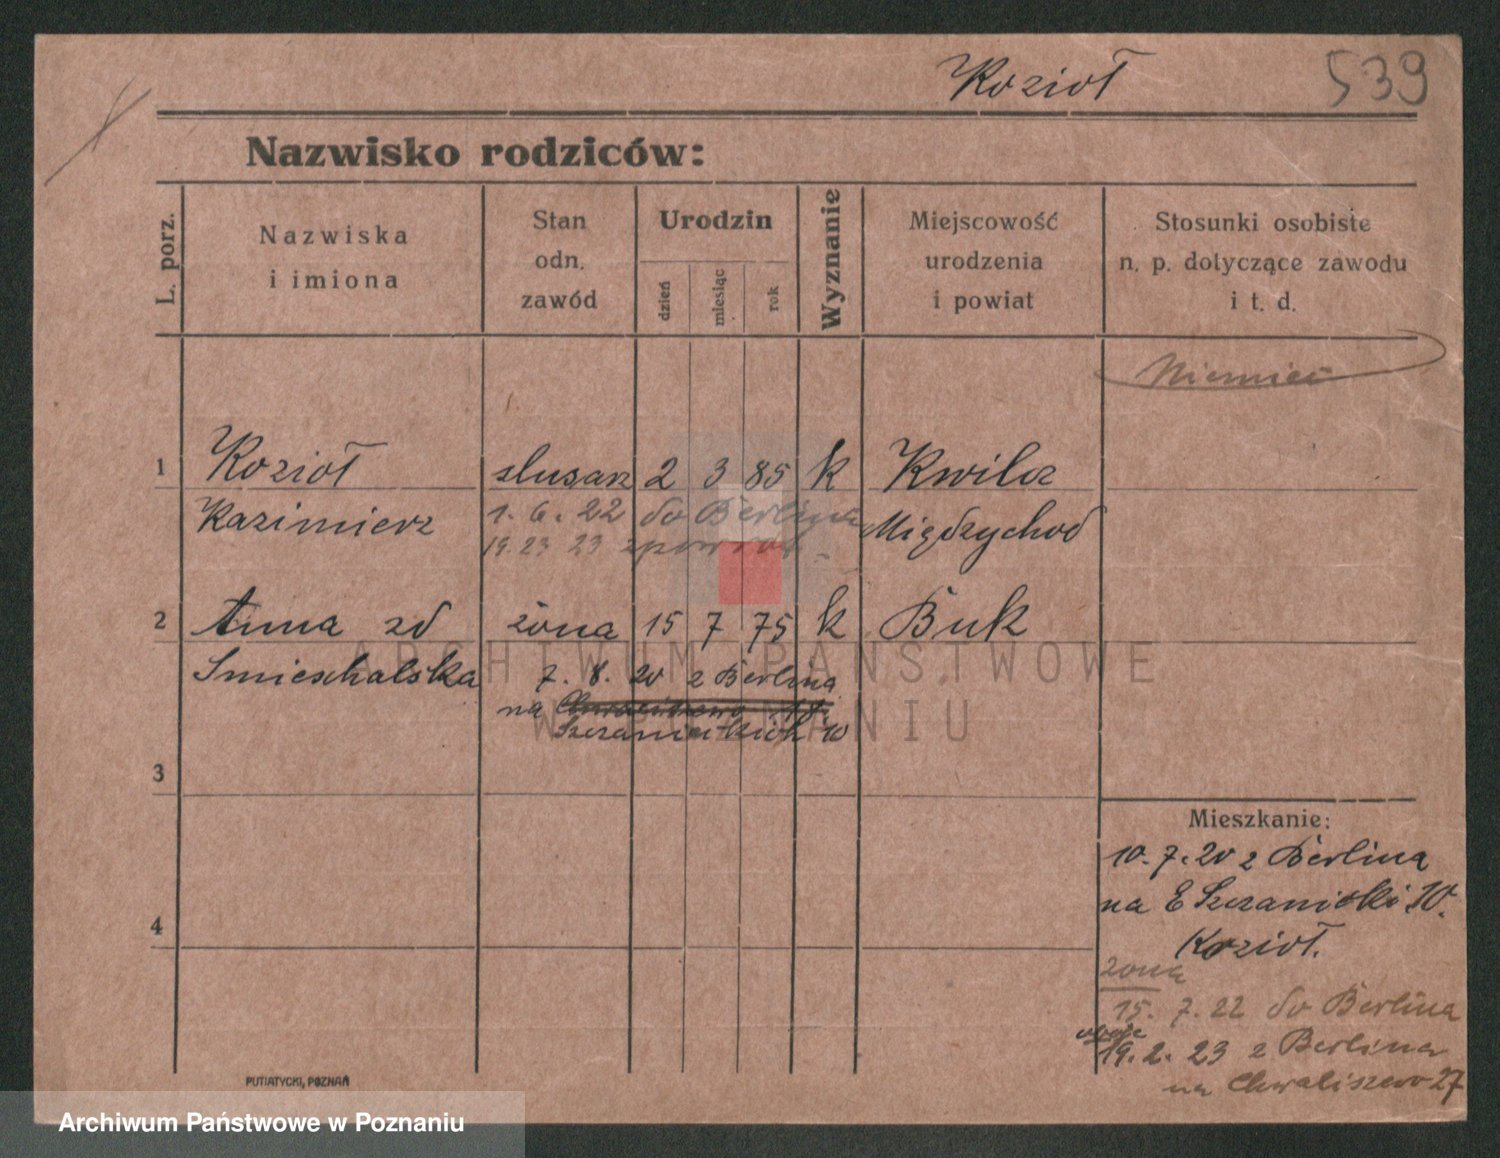 Kozioł 539
Nazwisko rodziców:
L. porz.
Nazwiska
i imiona
Stan
odn.
zawód
Urodzin
dzień
miesiąc
rok
Wyznanie
Miejscowość
urodzenia
i powiat
Stosunki osobiste
n. p. dotyczące zawodu
i t. d.
Niemiec
1 Kozioł slusarz 2 3 85 k Kwilcz
Kazimierz 1. 6. 22 do Berlina Międzychod
19. 23 23 z powrot.
2 Anna zd żona 15 7 75 k Buk
Smieschalska 7. 8. 20 z Berlina
na Chwaliszewo
10
3
Mieszkanie:
10. 7. 20 z Berlina
na E Szczanieckij 10.
4
Kozioł.
żona
15. 7. 22 do Berlina
oboje
19. 2. 23 z Berlina
na Chwaliszewo 27
PUTIATYCKI, POZNAŃ
ARCHIWUM PAŃSTWOWE
W POZNANIU
Archiwum Państwowe w Poznaniu